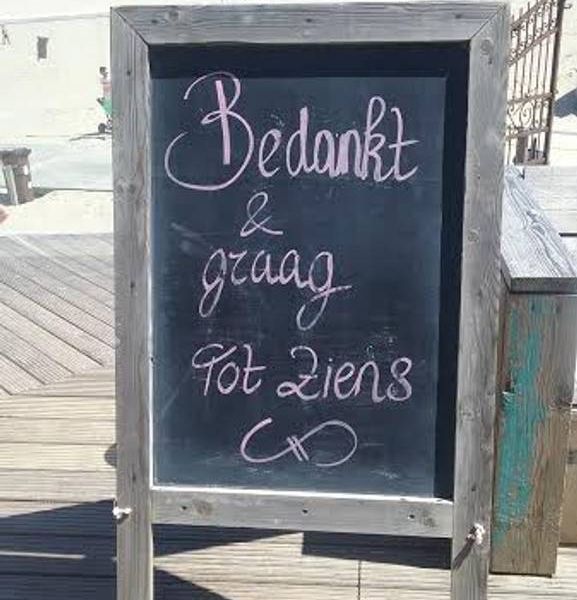 Bedankt
&
graag
Tot Ziens